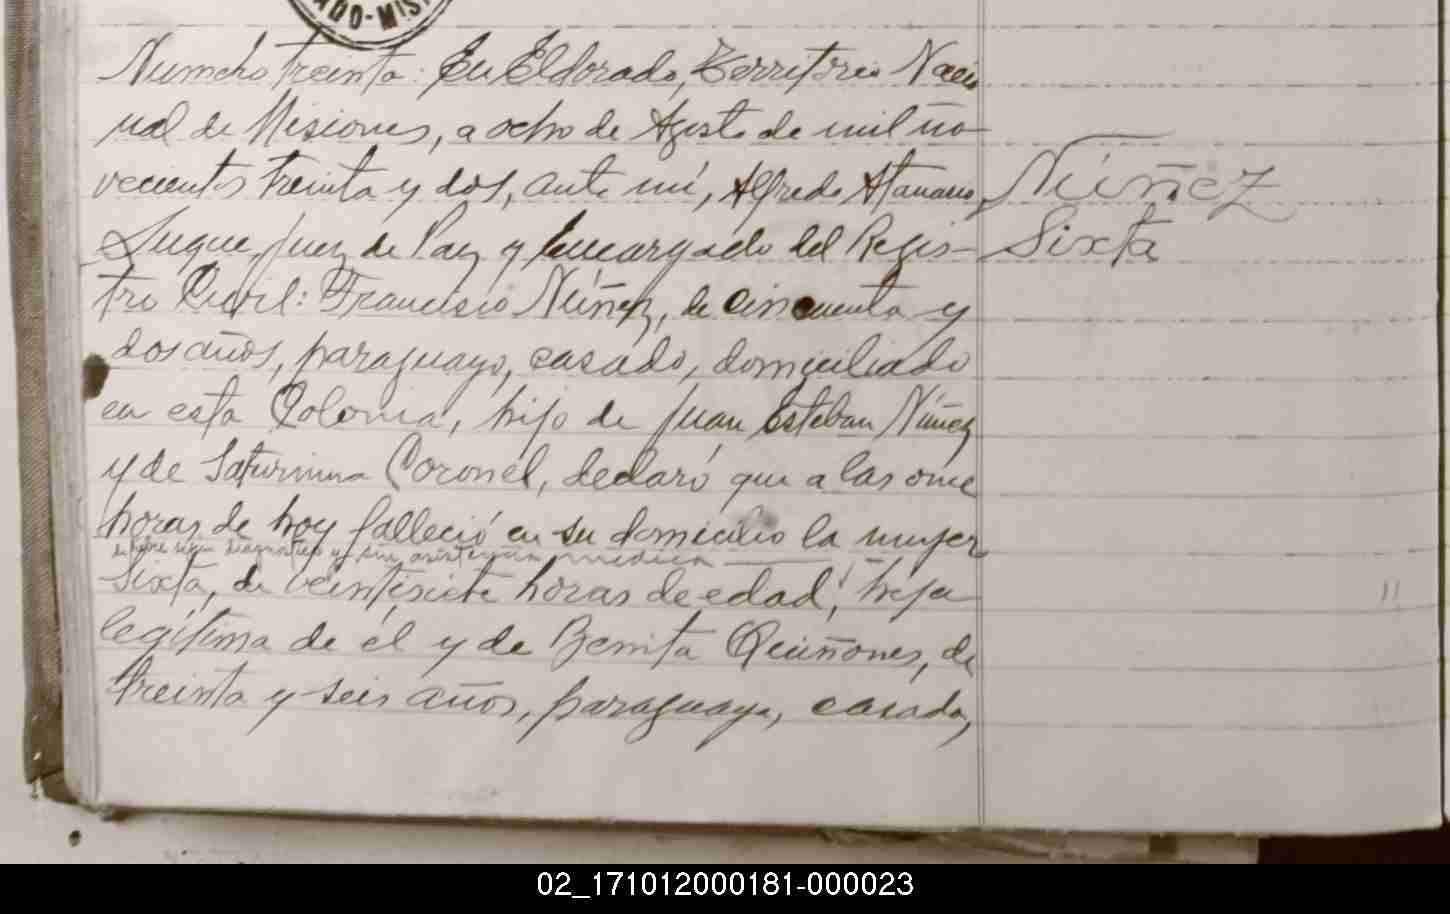 ADO-MIS
Número treinta: En Eldorado, Territorio Nacio
nal de Misiones, a ocho de Agosto de mil no-
vecientos treinta y dos, ante mí, Alfredo Atanacio
Luque, Juez de Paz y Encargado del Regis-
tro Civil: Francisco Núñez, de cincuenta y
dos años, paraguayo, casado, domiciliado
en esta Colonia, hijo de Juan Esteban Núñez
y de Saturnina Coronel, declaró que a las once
horas de hoy falleció en su domicilio la mujer
de fiebre según diagnóstico y sin asistencia médica
Sixta, de veintisiete horas de edad, hija
legítima de él y de Benita Quiñones, de
treinta y seis años, paraguaya, casada,
Núñez
Sixta
02_171012000181-000023